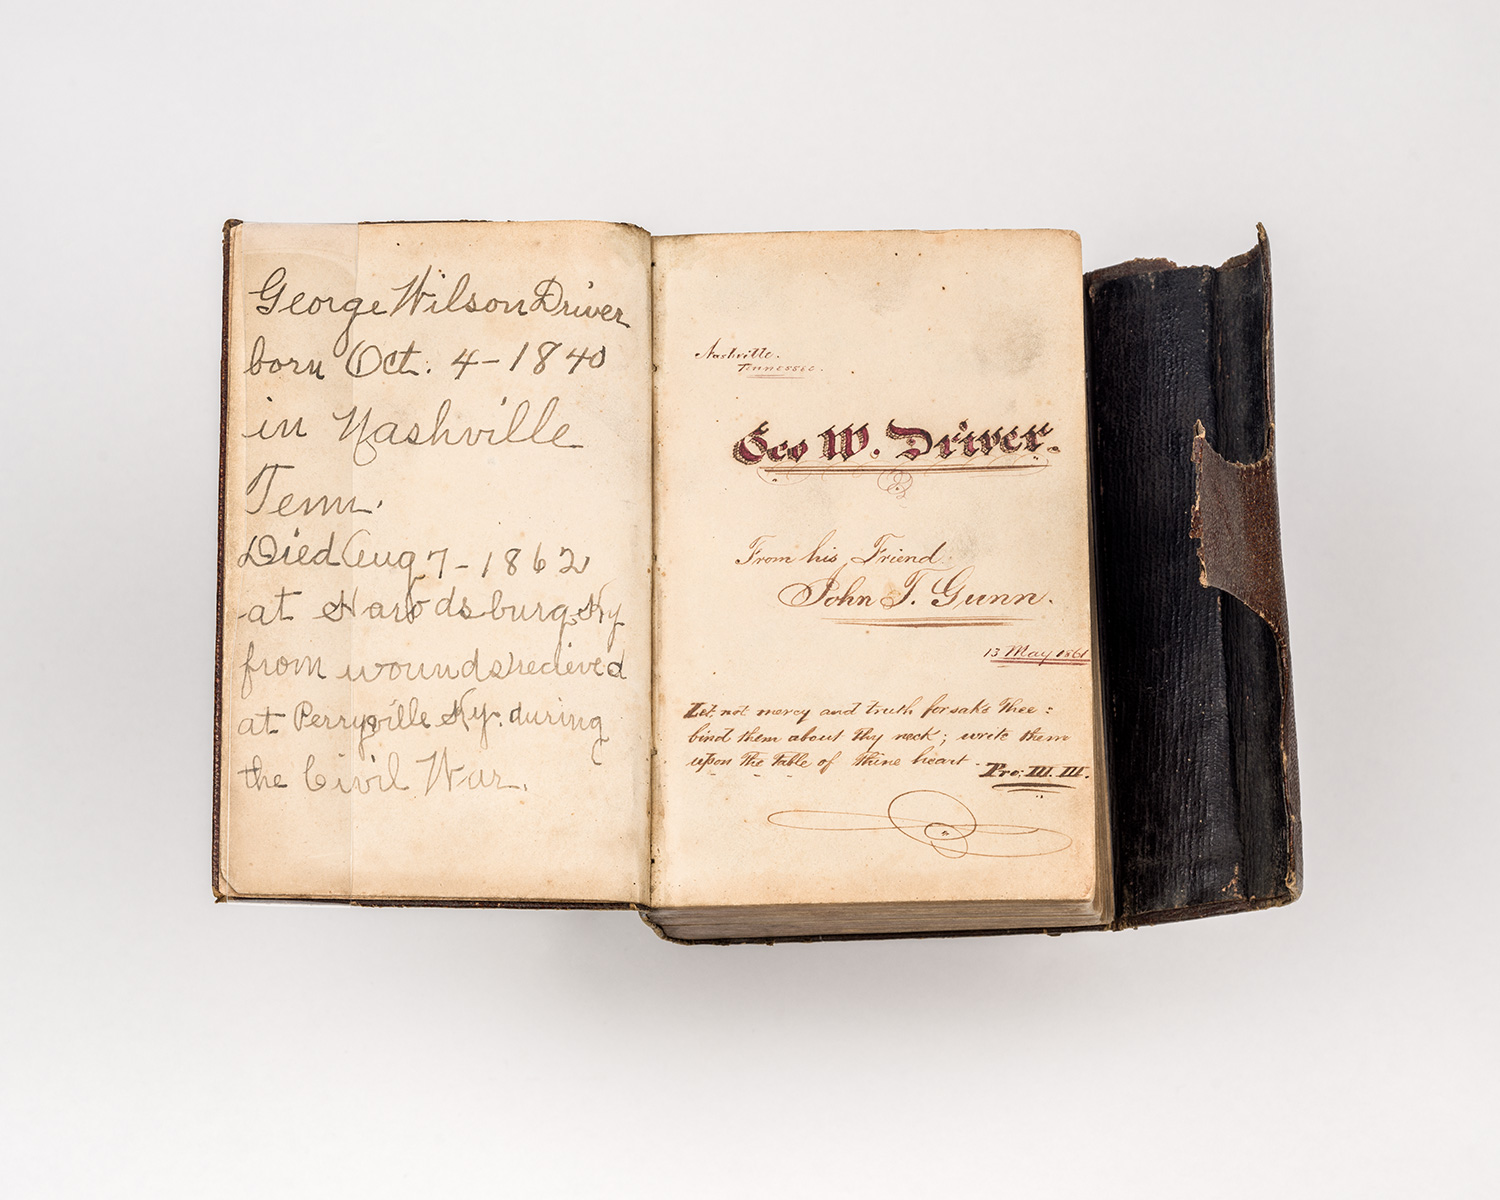 George Wilson Driver
born Oct. 4-1840
in Nashville
Tenn.
Died Aug 7-1862
at Harodsburg, Ky
from wounds recieved
at Perryville Ky. during
the Civil War.
Nashville.
Tennessee.
Geo W. Driver.
From his Friend
John T. Gunn.
13 May 1861
Let not mercy and truth forsake thee:
bind them about thy neck; write them
upon the table of thine heart.
Pro: III. III.